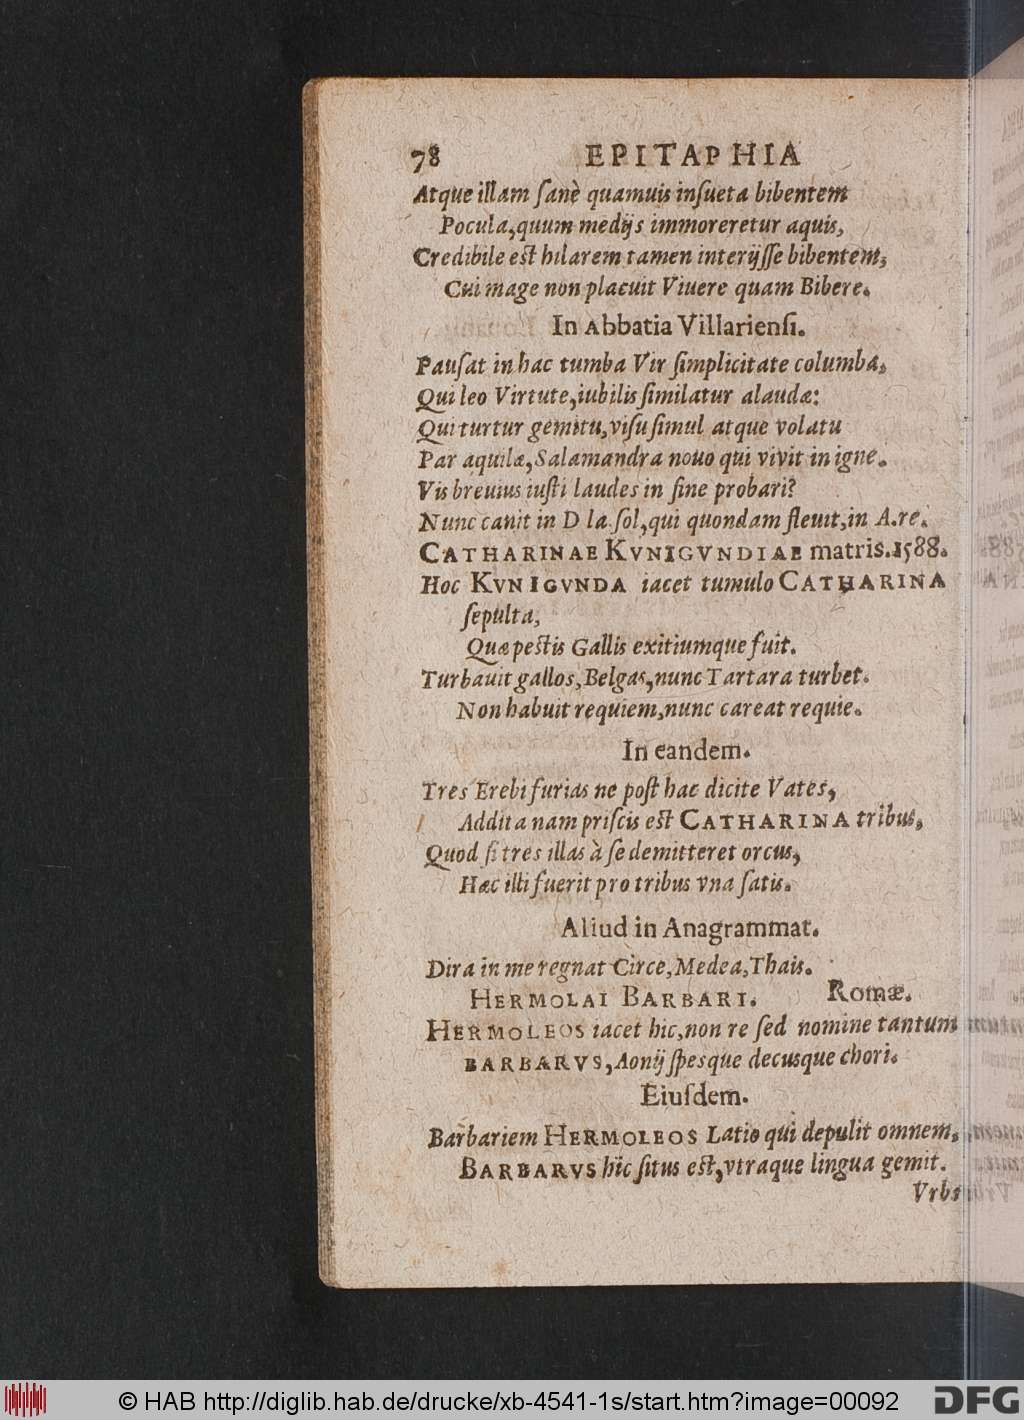 78 EPITAPHIA
Atque illam ſanè quamuis inſueta bibentem
Pocula, quum medijs immoreretur aquis,
Credibile est hilarem tamen interijſſe bibentem,
Cui mage non placuit Viuere quam Bibere.
In Abbatia Villarienſi.
Pauſat in hac tumba Vir ſimplicitate columba,
Qui leo Virtute, iubilis ſimilatur alaudæ:
Qui turtur gemitu, viſu ſimul atque volatu
Par aquilæ, Salamandra nouo qui vivit in igne.
Vis breuius iuſti laudes in fine probari?
Nunc canit in D la ſol, qui quondam fleuit, in A.re.
CATHARINAE KVNIGVNDIAE matris. 1588.
Hoc KVNIGVNDA iacet tumulo CATHARINA
ſepulta,
Quæ pestis Gallis exitiumque fuit.
Turbauit gallos, Belgas, nunc Tartara turbet.
Non habuit requiem, nunc careat requie.
In eandem.
Tres Erebi furias ne poſt hac dicite Vates,
Addita nam priſcis est CATHARINA tribus,
Quod ſi tres illas à ſe demitteret orcus,
Hæc illi fuerit pro tribus vna ſatis.
Aliud in Anagrammat.
Dira in me regnat Circe, Medea, Thais.
HERMOLAI BARBARI. Romæ.
HERMOLEOS iacet hic, non re ſed nomine tantum
BARBARVS, Aonij ſpesque decusque chori.
Eiuſdem.
Barbariem HERMOLEOS Latio qui depulit omnem,
BARBARVS hic ſitus est, vtraque lingua gemit.
Vrbs
© HAB http://diglib.hab.de/drucke/xb-4541-1s/start.htm?image=00092
DFG